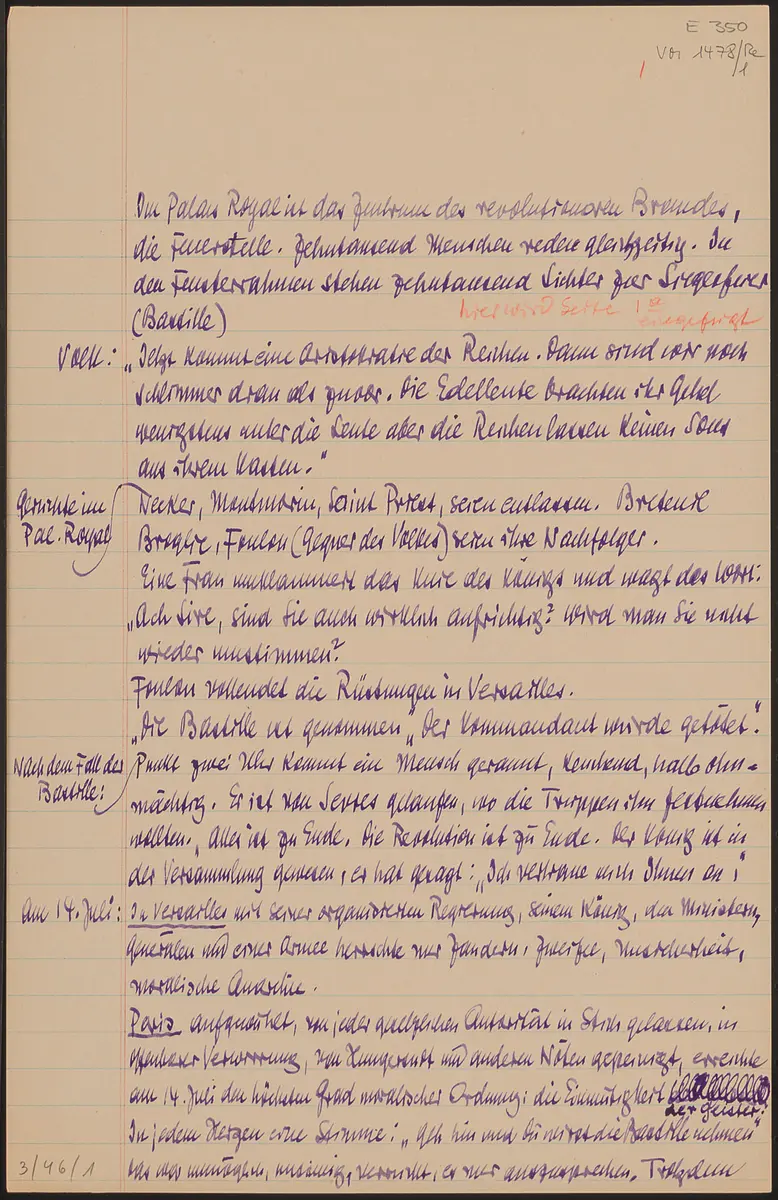 E 350
Vor 1478/Re
/1
Im Palais Royal ist das Zentrum des revolutionären Brandes,
die Feuerstelle. Zehntausend Menschen reden gleichzeitig. In
den Fensterrahmen stehen zehntausend Lichter zur Siegesfeier
(Bastille)
hier wird Seite 1a
eingefügt
Volk: „Jetzt kommt eine Aristokratie der Reichen. Dann sind wir noch
schlimmer dran als zuvor. Die Edelleute brachten ihr Geld
wenigstens unter die Leute aber die Reichen lassen keinen Sous
aus ihrem Kasten."
Gerüchte im
Pal. Royal
Necker, Montmorin, Saint Priest, seien entlassen. Breteuil
Broglie, Foulon (Gegner des Volkes) seien ihre Nachfolger.
Eine Frau umklammert das Knie des Königs und wagt das Wort:
„Ach Sire, sind Sie auch wirklich aufrichtig? Wird man Sie nicht
wieder umstimmen?
Foulon vollendet die Rüstungen in Versailles.
„Die Bastille ist genommen „Der Kommandant wurde getötet".
Nach dem Fall der
Bastille:
Punkt zwei Uhr kommt ein Mensch gerannt, keuchend, halb ohn=
mächtig. Er ist von Sevres gelaufen, wo die Truppen ihn festnehmen
wollten. „Alles ist zu Ende. Die Revolution ist zu Ende. Der König ist in
der Versammlung gewesen, er hat gesagt: „Ich vertraue mich Ihnen an!"
Am 14. Juli: In Versailles mit seiner organisierten Regierung, seinem König, den Ministern,
Generälen und einer Armee herrschte nur Zaudern, Zweifel, Unsicherheit,
moralische Anarchie.
Paris aufgewühlt, von jeder gesetzlichen Autorität in Stich gelassen, in
offenbarer Verwirrung, von Hungersnot und anderen Nöten gepeinigt, erreichte
am 14. Juli den höchsten Grad moralischer Ordnung: die Einmütigkeit
der Geister:
In jedem Herzen eine Stimme: „Geh hin und Du wirst die Bastille nehmen"
das war unmöglich, unsinnig, verrückt, es nur auszusprechen. Trotzdem
3/46/1